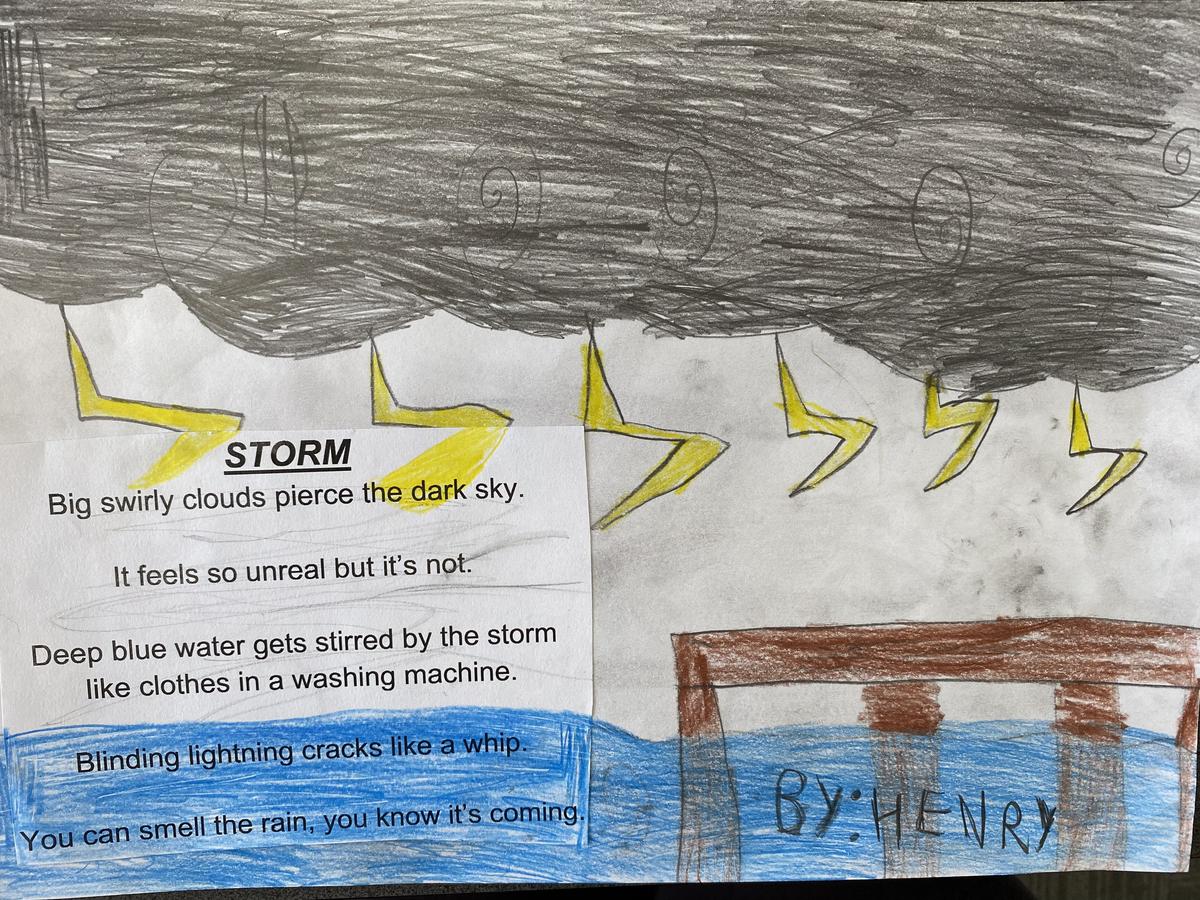 STORM
Big swirly clouds pierce the dark sky.
It feels so unreal but it's not.
Deep blue water gets stirred by the storm
like clothes in a washing machine.
Blinding lightning cracks like a whip.
You can smell the rain, you know it's coming.
BY: HENRY